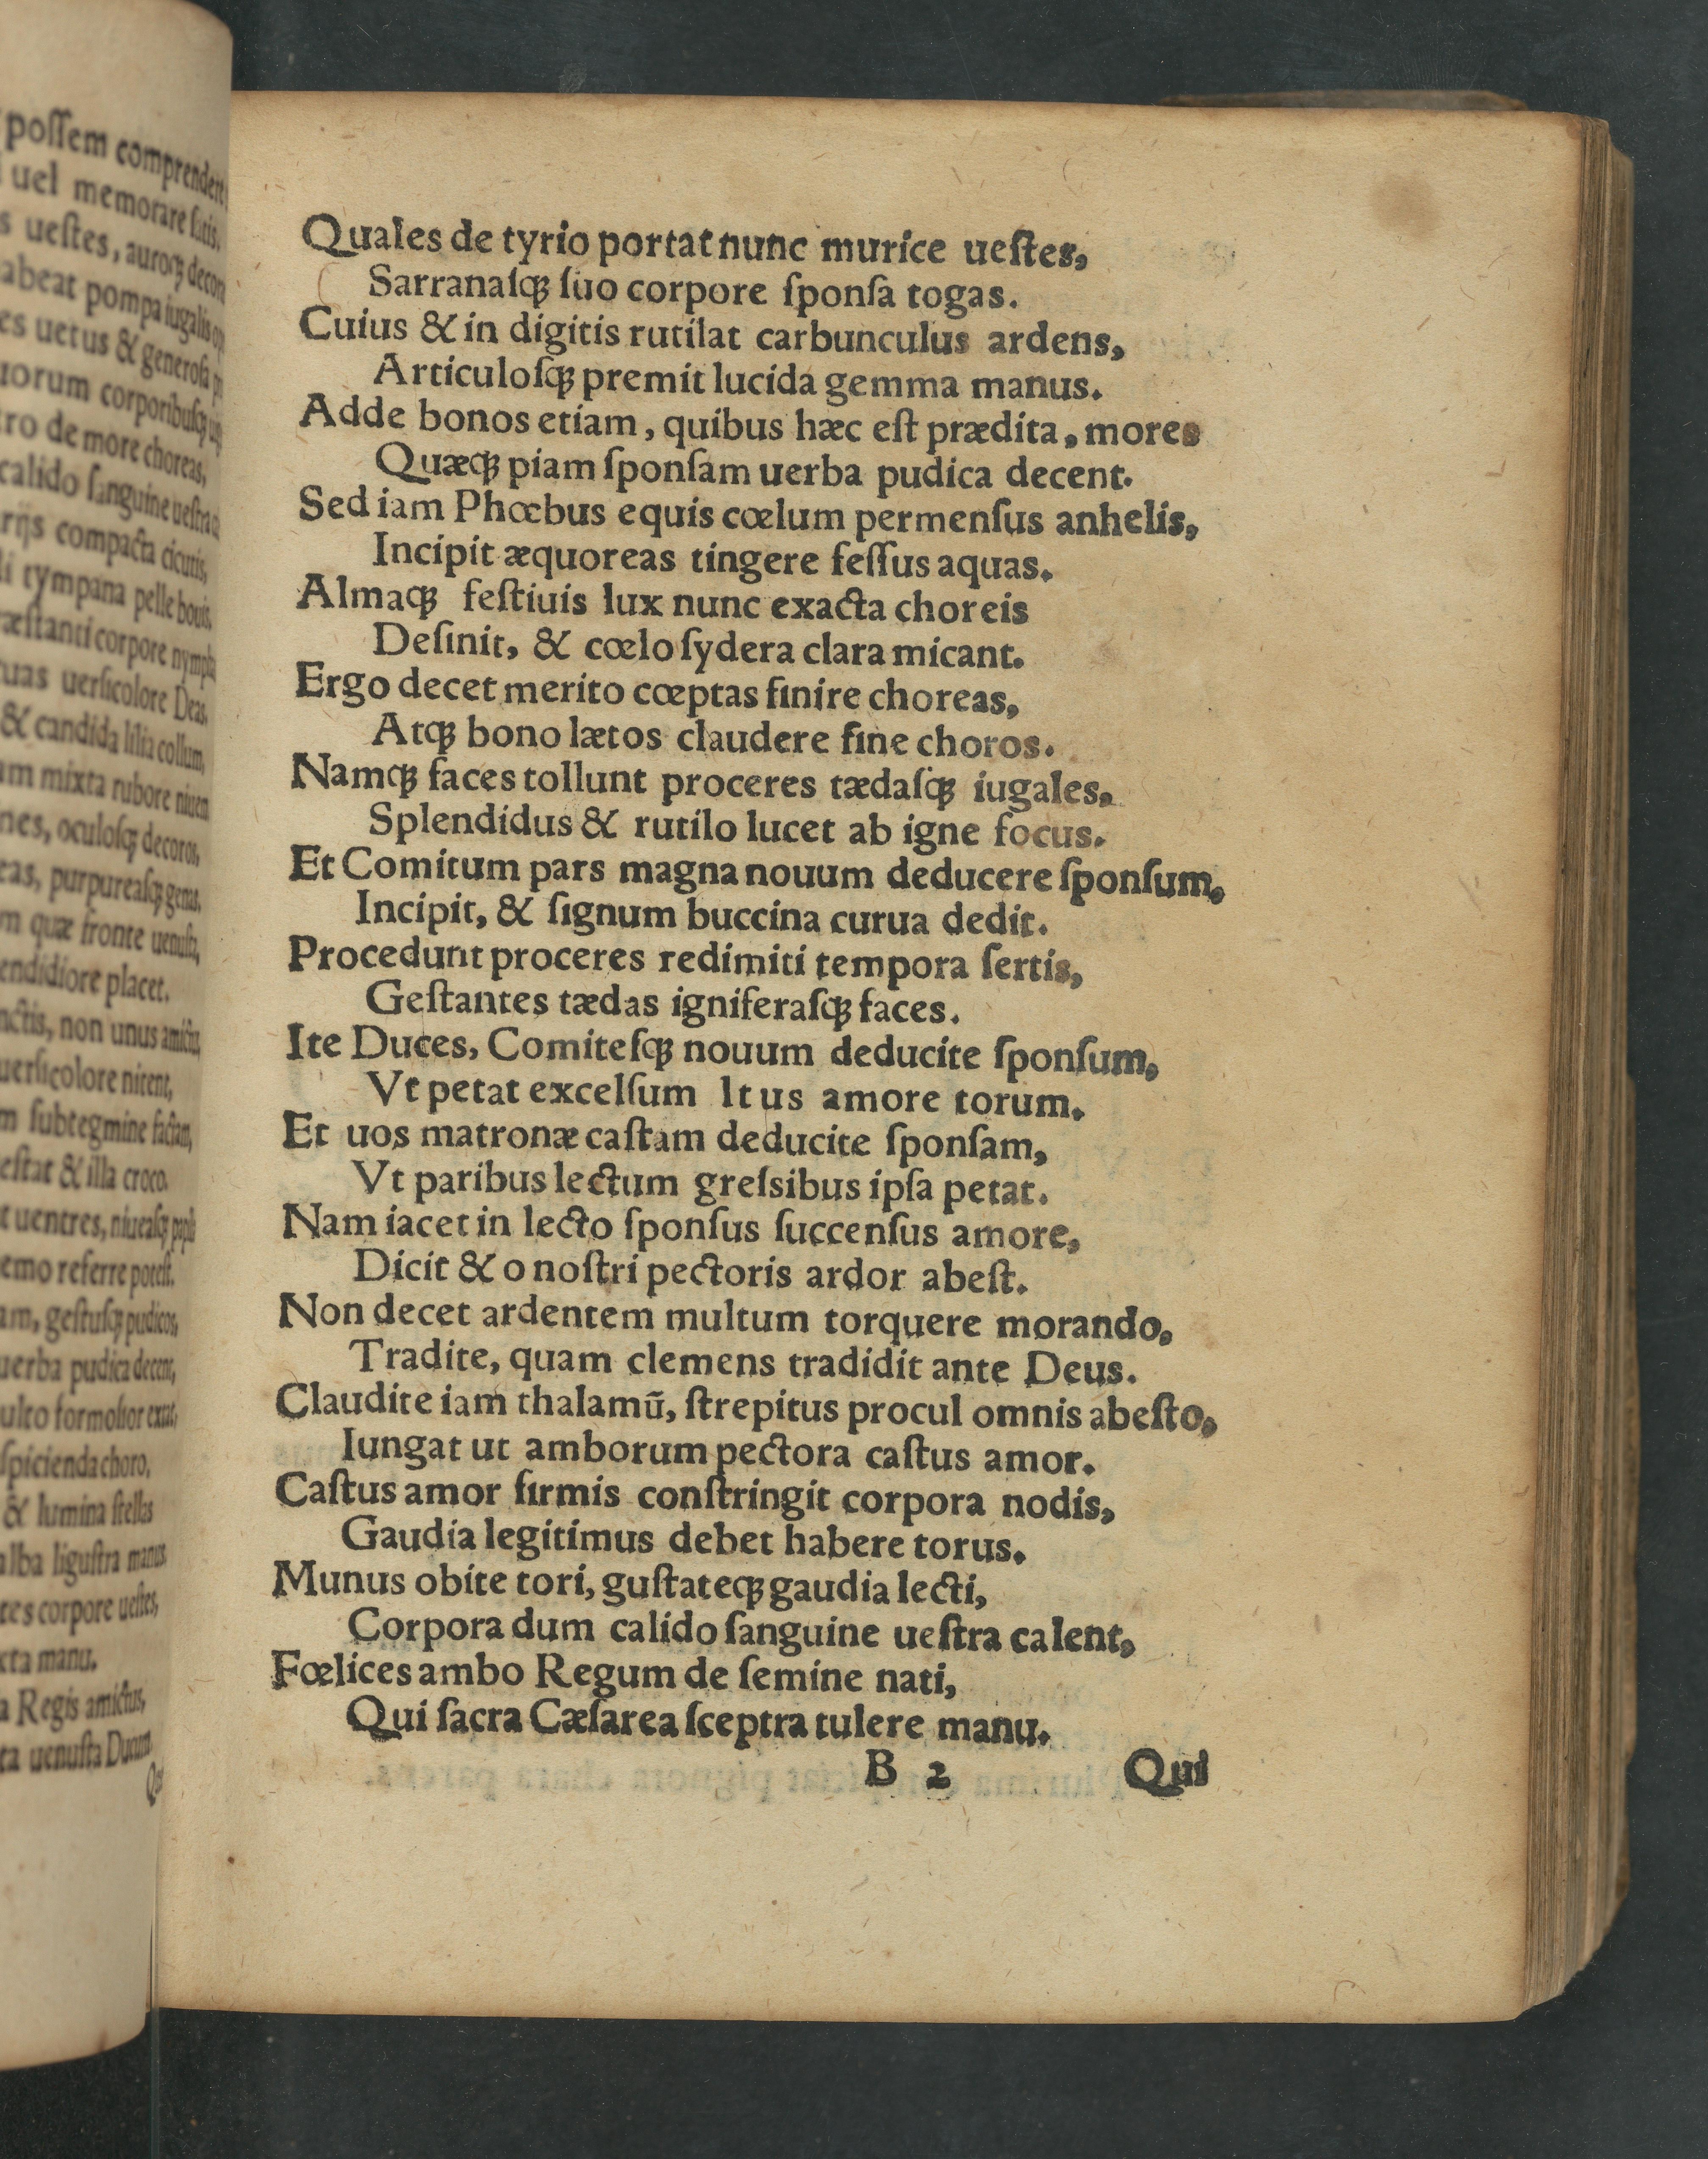 possem comprendere
uel memorare satis,
s uestes, auroq; decor
abeat pompa iugalis op
es uetus & generosa p
uorum corporibusq;
tro de more choreas,
calido sanguine uestra
rijs compacta cicutis,
li tympana pelle bouis,
æstanti corpore nympha
tuas uersicolore Deas,
& candida lilia collum,
um mixta rubore niuen
nes, oculosq; decoros,
eas, purpureasq; genas,
m quæ fronte uenusta,
endidiore placet.
nctis, non unus amictus,
uersicolore nitent,
m subtegmine factam,
estat & illa croco.
t uentres, niueasq;
emo referre potest.
am, gestusq; pudicos,
uerba pudica decent,
ulto formosior extat,
spicienda choro,
& lumina stellas
alba ligustra manus
tes corpore uestes,
xta manu.
a Regis amictus,
ta uenusta Ducum
Qua
Quales de tyrio portat nunc murice ueſtes,
Sarranaſq; ſuo corpore ſponſa togas.
Cuius & in digitis rutilat carbunculus ardens,
Articuloſq; premit lucida gemma manus.
Adde bonos etiam, quibus hæc eſt prædita, mores
Quæq; piam ſponſam uerba pudica decent.
Sed iam Phœbus equis cœlum permenſus anhelis,
Incipit æquoreas tingere feſſus aquas.
Almaq; feſtiuis lux nunc exacta choreis
Deſinit, & cœlo ſydera clara micant.
Ergo decet merito cœptas finire choreas,
Atq; bono lætos claudere fine choros.
Namq; faces tollunt proceres tædaſq; iugales,
Splendidus & rutilo lucet ab igne focus.
Et Comitum pars magna nouum deducere ſponſum,
Incipit, & ſignum buccina curua dedit.
Procedunt proceres redimiti tempora ſertis,
Geſtantes tædas igniferaſq; faces.
Ite Duces, Comiteſq; nouum deducite ſponſum,
Vt petat excelſum lt us amore torum.
Et uos matronæ caſtam deducite ſponſam,
Vt paribus lectum greſsibus ipſa petat.
Nam iacet in lecto ſponſus ſuccenſus amore,
Dicit & o noſtri pectoris ardor abeſt.
Non decet ardentem multum torquere morando,
Tradite, quam clemens tradidit ante Deus.
Claudite iam thalamū, ſtrepitus procul omnis abeſto,
Iungat ut amborum pectora caſtus amor.
Caſtus amor firmis conſtringit corpora nodis,
Gaudia legitimus debet habere torus.
Munus obite tori, guſtateq; gaudia lecti,
Corpora dum calido ſanguine ueſtra calent,
Fœlices ambo Regum de ſemine nati,
Qui ſacra Cæſarea ſceptra tulere manu.
B 2 Qui